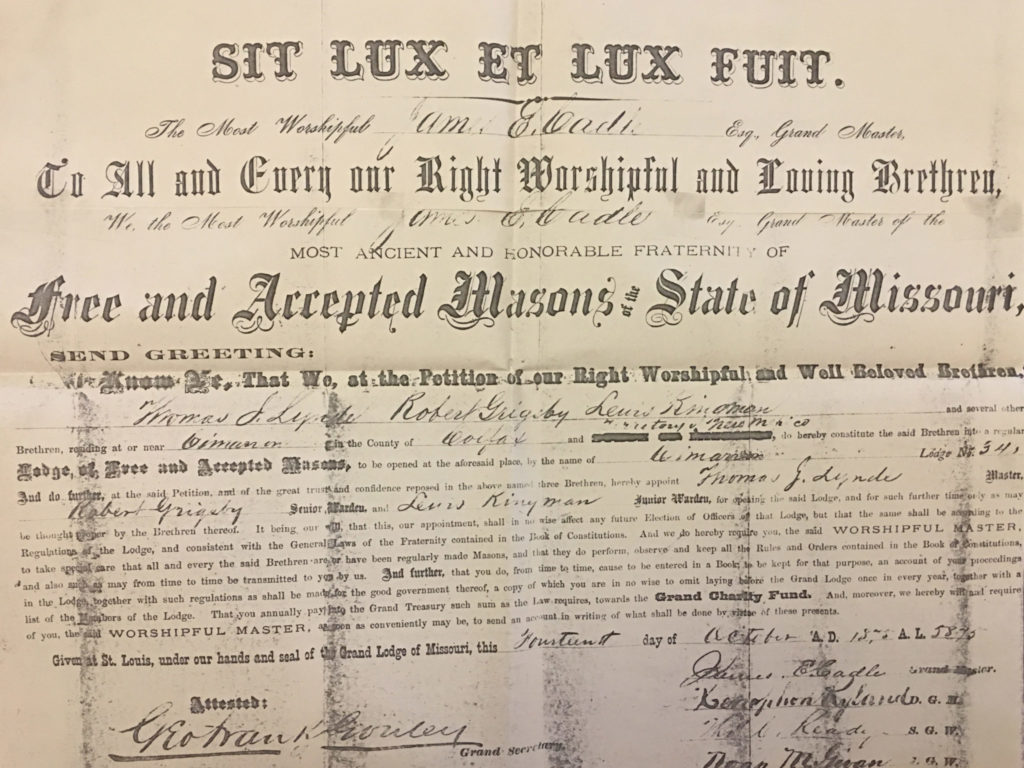 SIT LUX ET LUX FUIT.
The Most Worshipful James E. Cadle Esq., Grand Master,
To All and Every our Right Worshipful and Loving Brethren,
We, the Most Worshipful James E. Cadle Esq. Grand Master of the
MOST ANCIENT AND HONORABLE FRATERNITY OF
Free and Accepted Masons of the State of Missouri,
SEND GREETING:
Know Ye, That We, at the Petition of our Right Worshipful and Well Beloved Brethren,
Thomas J. Lynde Robert Grigsby Lewis Kingman and several other
Brethren, residing at or near Cimarron in the County of Colfax and Territory New Mexico, do hereby constitute the said Brethren into a regular
Lodge, of Free and Accepted Masons, to be opened at the aforesaid place, by the name of Cimarron Lodge No. 348
And do further, at the said Petition, and of the great trust and confidence reposed in the above named three Brethren, hereby appoint Thomas J. Lynde Master,
Robert Grigsby Senior Warden, and Lewis Kingman Junior Warden, for opening the said Lodge, and for such further time only as may
be thought proper by the Brethren thereof. It being our will, that this, our appointment, shall in no wise affect any future Election of Officers of that Lodge, but that the same shall be according to the
Regulations of the Lodge, and consistent with the General Laws of the Fraternity contained in the Book of Constitutions. And we do hereby require you, the said WORSHIPFUL MASTER,
to take special care that all and every the said Brethren are or have been regularly made Masons, and that they do perform, observe and keep all the Rules and Orders contained in the Book of Constitutions,
and also such as may from time to time be transmitted to you by us. And further, that you do, from time to time, cause to be entered in a Book to be kept for that purpose, an account of your proceedings
in the Lodge, together with such regulations as shall be made for the good government thereof, a copy of which you are in no wise to omit laying before the Grand Lodge once in every year, together with a
list of the Members of the Lodge. That you annually pay into the Grand Treasury such sum as the Law requires, towards the Grand Charity Fund. And, moreover, we hereby will and require
of you, the said WORSHIPFUL MASTER, as soon as conveniently may be, to send an account in writing of what shall be done by virtue of these presents.
Given at St. Louis, under our hands and seal of the Grand Lodge of Missouri, this Fourteenth day of October A. D. 1875 A. L. 5875
James E. Cadle Grand Master.
Xenophon Ryland D. G. M.
Attested:
S. G. W.
Grand Secretary.
Noah M. Givan J. G. W.